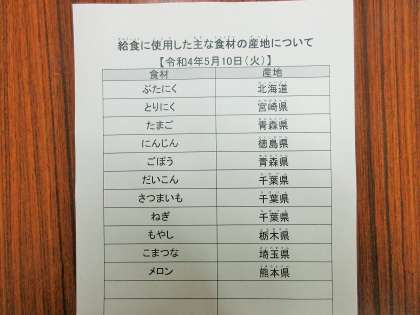 給食に使用した主な食材の産地について
【令和4年5月10日(火)】
食材 産地
ぶたにく 北海道
とりにく 宮崎県
たまご 青森県
にんじん 徳島県
ごぼう 青森県
だいこん 千葉県
さつまいも 千葉県
ねぎ 千葉県
もやし 栃木県
こまつな 埼玉県
メロン 熊本県